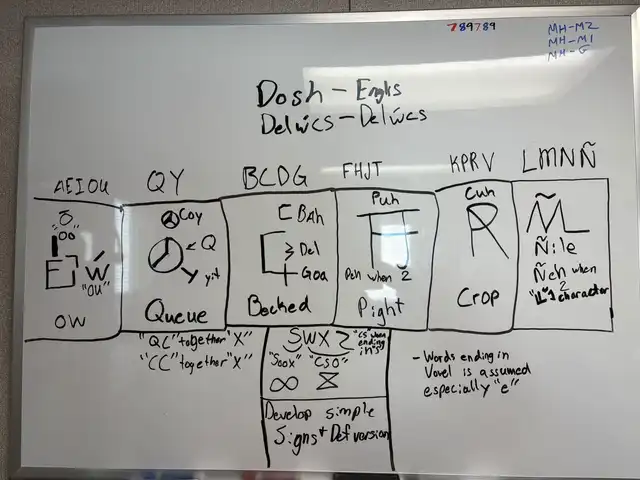 789789
MH-M2
MH-M1
MH-G
Dosh - Engls
Delẃcs - Delẃcs
AEIOU
QY
BCDG
FHJT
KPRV
LMNÑ
"oo"
E
Ẃ
"OU"
OW
Coy
Q
yit
Queue
C Bah
Del
Goa
Bocked
Puh
Pah when 2
Pight
Cuh
R
Crop
Ñile
Ñeh when
2
"L"s character
"QC" together "X"
"CC" together "X"
SWXZ
"CS" when
ending
in "s"
"Soox" "CSO"
Develop simple
Signs + Def version
- Words ending in
Vovel is assumed
especially "e"